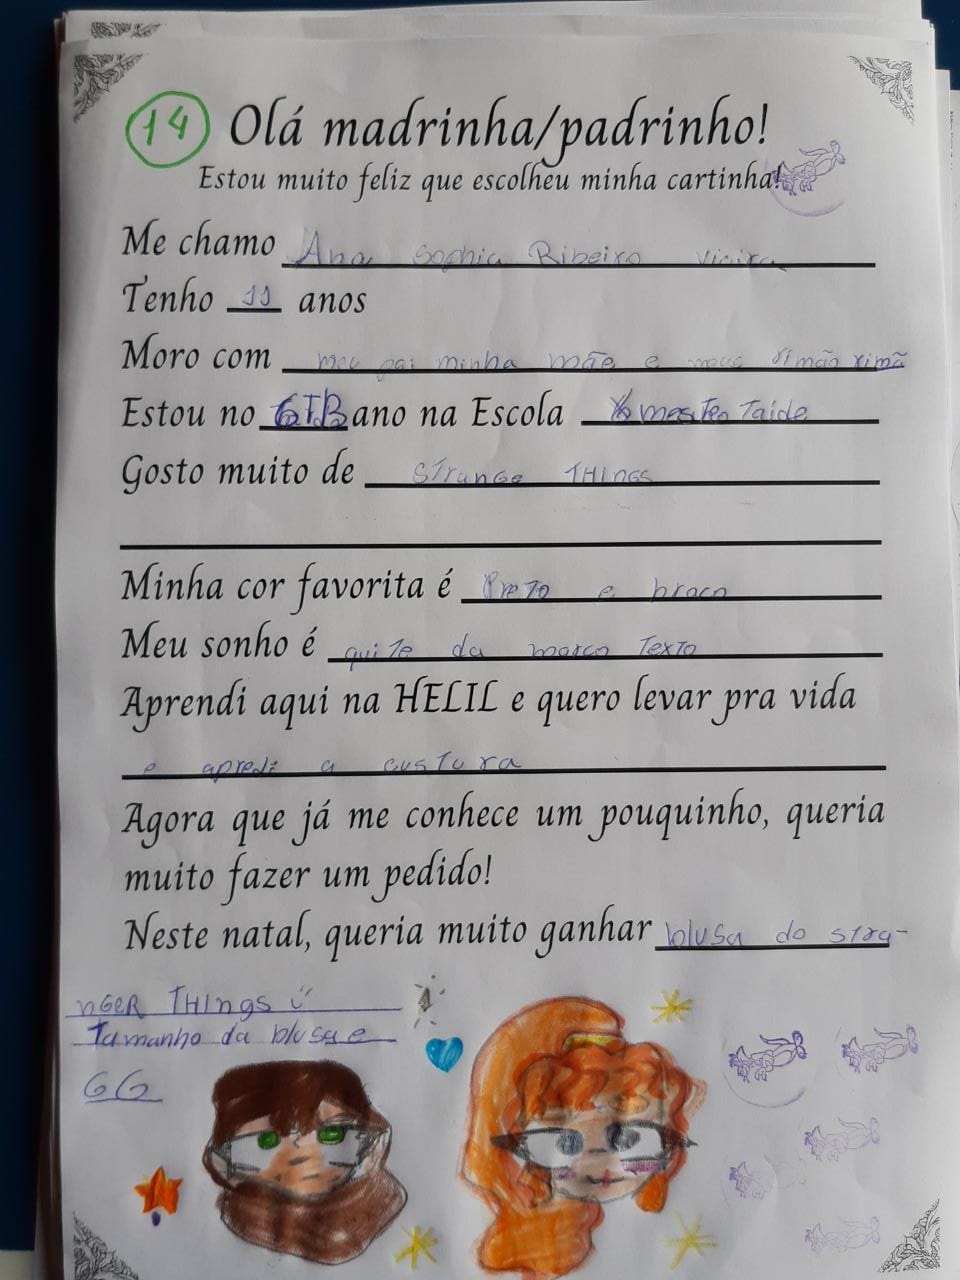 14 Olá madrinha/padrinho!
Estou muito feliz que escolheu minha cartinha!
Me chamo Ana Sophia Ribeiro Vieira
Tenho 11 anos
Moro com meu pai minha mãe e meus rimão rimã
Estou no ano na Escola mestre Taide
Gosto muito de STrange THINGS
Minha cor favorita é PreTo e braco
Meu sonho é quiTe da marco TexTo
Aprendi aqui na HELIL e quero levar pra vida
e apredi a cusTura
Agora que já me conhece um pouquinho, queria
muito fazer um pedido!
Neste natal, queria muito ganhar blusa do sTra-
nGER THINgs
Tamanho da blusa e
GG